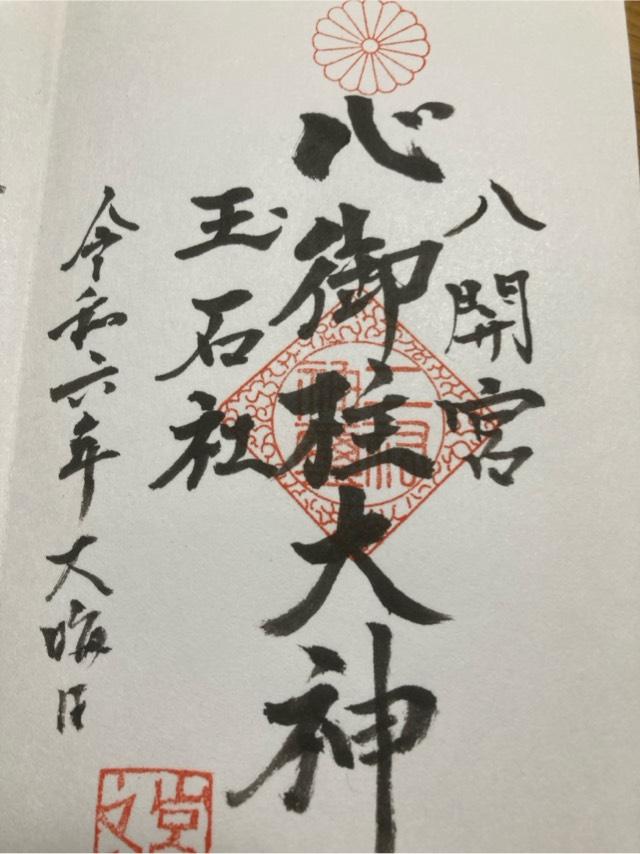 八開宮
心御柱大神
玉石社
令和六年大晦日